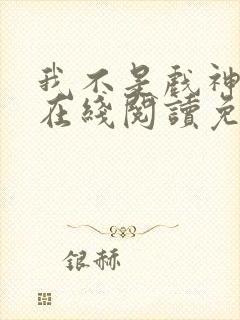 我不是戲神
在綫閱讀免
銀赫